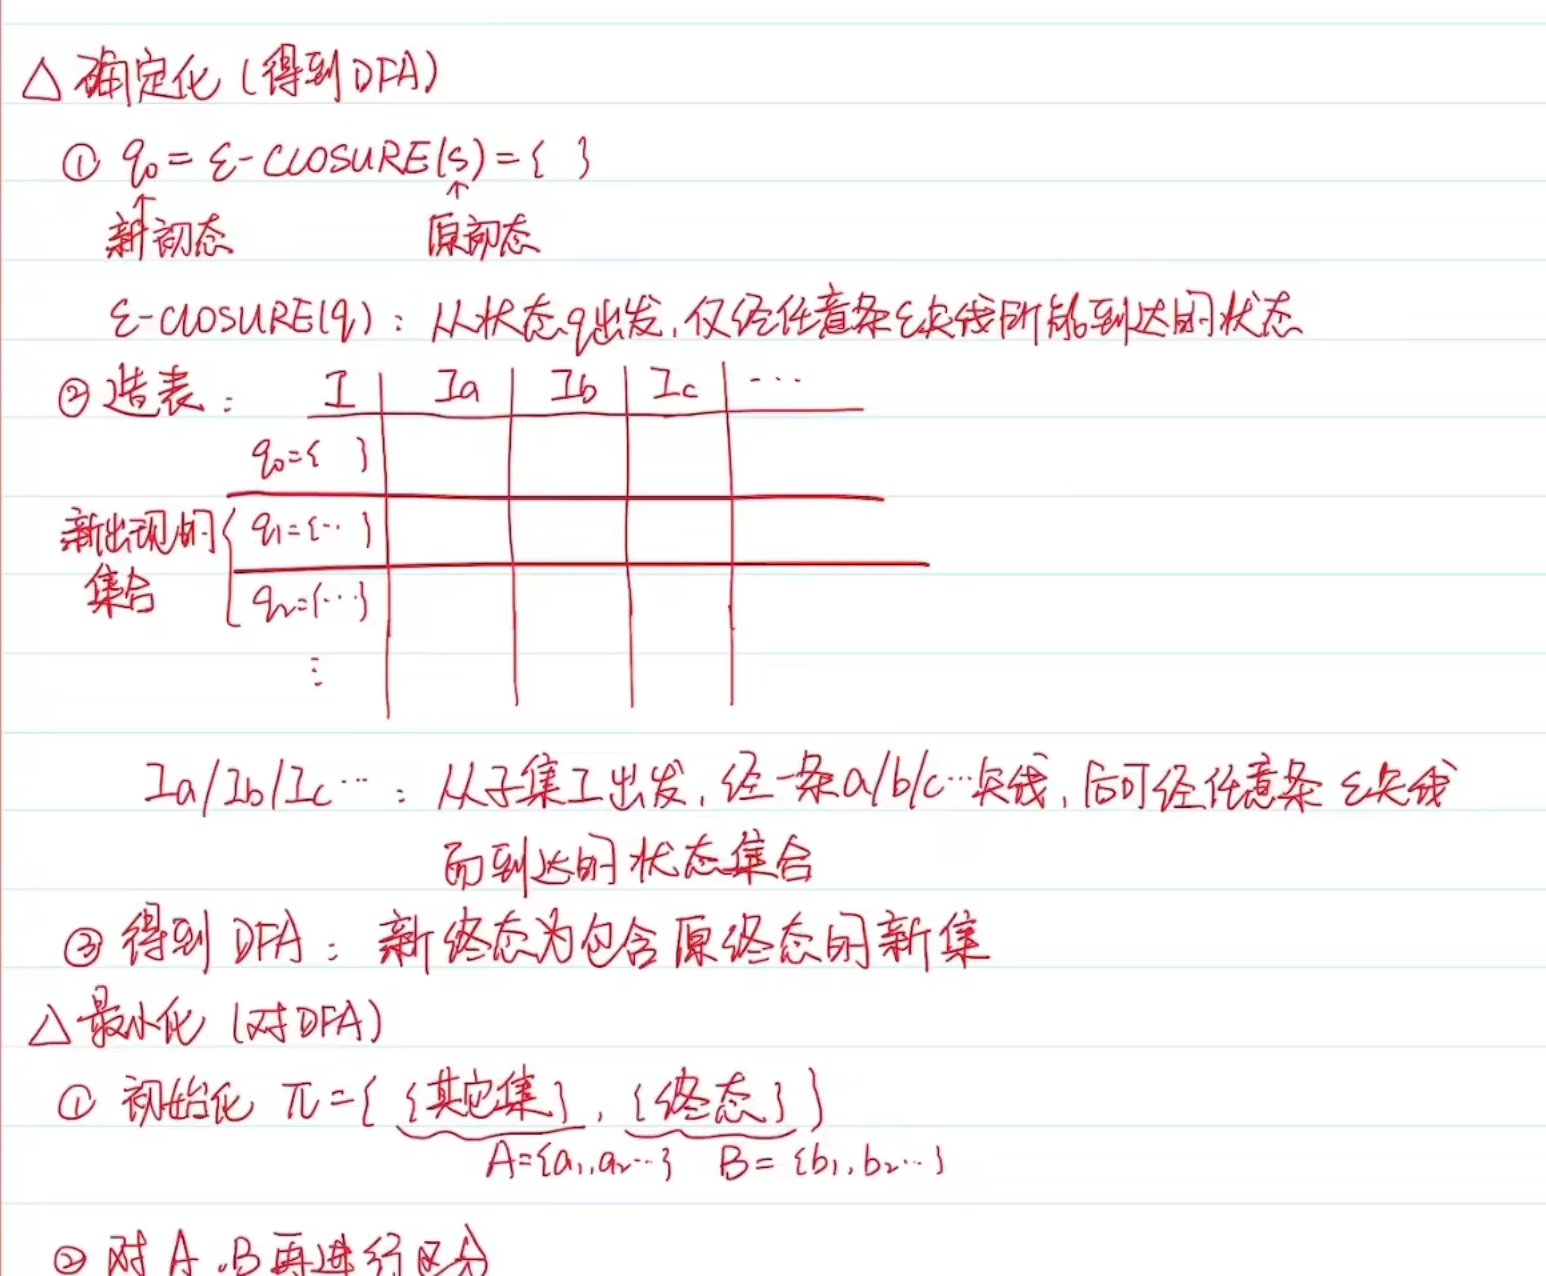 △ 确定化（得到DFA）
① q₀ = ε-CLOSURE(s) = { }
↑ ↑
新初态 原初态
ε-CLOSURE(q)：从状态q出发，仅经任意条ε矢线所能到达的状态
② 造表： I Ia Ib Ic ···
q₀={ }
新出现的集合 { q₁={·· }
q₂={···}
⋮
Ia/Ib/Ic ··· ：从子集I出发，经一条a/b/c···矢线，后可经任意条ε矢线
而到达的状态集合
③ 得到 DFA：新终态为包含原终态的新集
△ 最小化（对DFA）
① 初始化 π={ {其它集}, {终态} }
A={a₁,a₂···} B={b₁,b₂···}
② 对A,B再进行区分